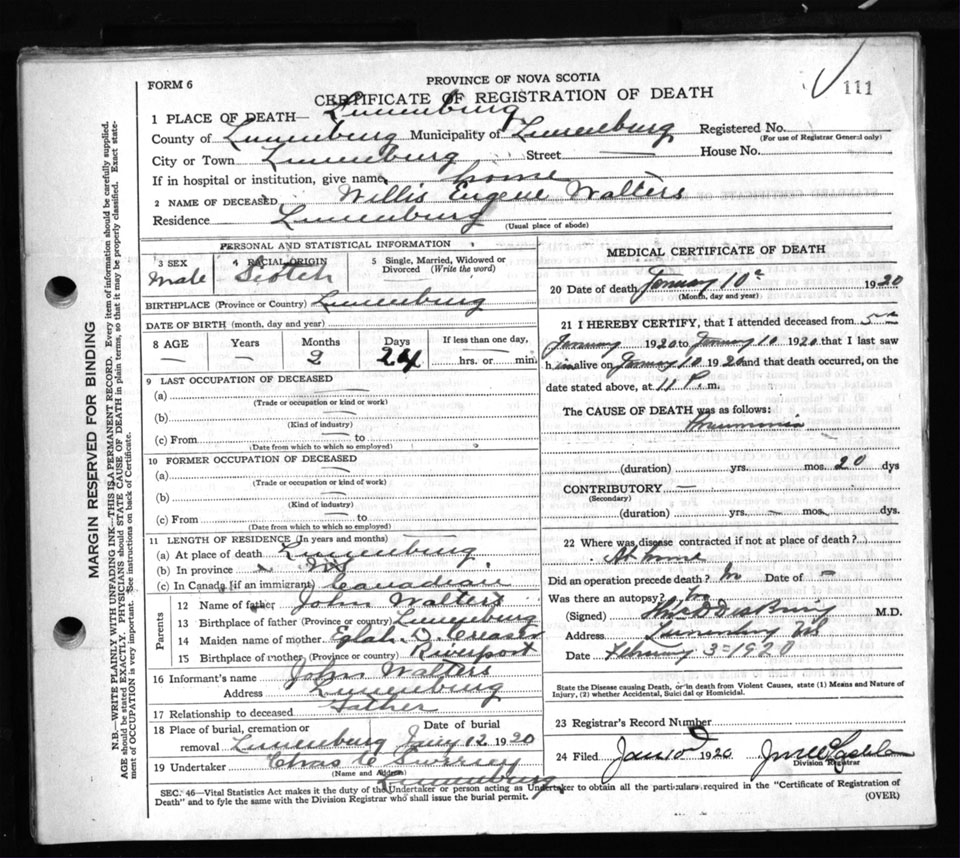 FORM 6
PROVINCE OF NOVA SCOTIA
111
CERTIFICATE OF REGISTRATION OF DEATH
1 PLACE OF DEATH— Lunenburg
County of Lunenburg Municipality of Lunenburg Registered No.
(For use of Registrar General only)
City or Town Lunenburg Street — House No.
If in hospital or institution, give name home
2 NAME OF DECEASED Willis Eugene Walters
Residence Lunenburg
(Usual place of abode)
PERSONAL AND STATISTICAL INFORMATION
3 SEX Male
4 RACIAL ORIGIN Scotch
5 Single, Married, Widowed or Divorced (Write the word)
BIRTHPLACE (Province or Country) Lunenburg
DATE OF BIRTH (month, day and year)
8 AGE Years Months Days If less than one day,
— 2 24 hrs. or min.
9 LAST OCCUPATION OF DECEASED
(a) —
(Trade or occupation or kind or work)
(b) —
(Kind of industry)
(c) From — to
(Date from which to which so employed)
10 FORMER OCCUPATION OF DECEASED
(a) —
(Trade or occupation or kind or work)
(b) —
(Kind of industry)
(c) From — to
(Date from which to which so employed)
11 LENGTH OF RESIDENCE (In years and months)
(a) At place of death Lunenburg
(b) In province
(c) In Canada (if an immigrant) Canadian
Parents
12 Name of father John Walters
13 Birthplace of father (Province or country) Lunenburg
14 Maiden name of mother D. Creaser
15 Birthplace of mother (Province or country) Riverport
16 Informant's name John Walters
Address Lunenburg
17 Relationship to deceased Father
18 Place of burial, cremation or removal Lunenburg
Date of burial Jany 12 1920
19 Undertaker Chas C
(Name and Address) Lunenburg
MEDICAL CERTIFICATE OF DEATH
20 Date of death January 10 1920
(Month, day and year)
21 I HEREBY CERTIFY, that I attended deceased from 5
January 1920 to January 10 1920 that I last saw
him alive on January 10 1920 and that death occurred, on the
date stated above, at 11 P. m.
The CAUSE OF DEATH was as follows:
Pneumonia
(duration) yrs. mos. 20 dys
CONTRIBUTORY —
(Secondary)
(duration) yrs. — mos. dys
22 Where was disease contracted if not at place of death?
At home
Did an operation precede death? No Date of —
Was there an autopsy? No
(Signed) M.D.
Address Lunenburg NS
Date February 3 - 1920
State the Disease causing Death, or in death from Violent Causes, state (1) Means and Nature of
Injury, (2) whether Accidental, Suicidal or Homicidal.
23 Registrar's Record Number
24 Filed Jan 10 1920
Division Registrar
SEC. 46—Vital Statistics Act makes it the duty of the Undertaker or person acting as Undertaker to obtain all the particulars required in the "Certificate of Registration of
Death" and to fyle the same with the Division Registrar who shall issue the burial permit.
(OVER)
MARGIN RESERVED FOR BINDING
N.B.—WRITE PLAINLY WITH UNFADING INK—THIS IS A PERMANENT RECORD. Every item of information should be carefully supplied.
AGE should be stated EXACTLY. PHYSICIANS should STATE CAUSE OF DEATH in plain terms, so that it may be properly classified. Exact state-
ment of OCCUPATION is very important. See instructions on back of Certificate.